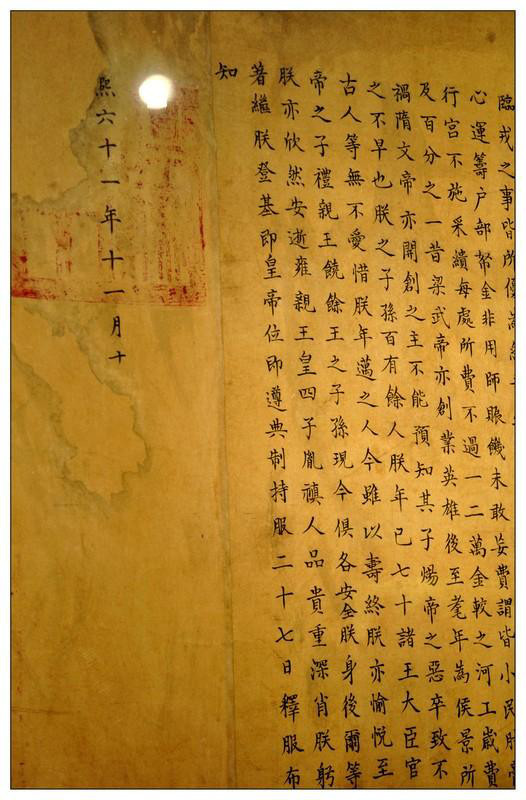 臨戎之事皆所優為
心運籌戶部帑金非用師賑饑未敢妄費謂皆小民脂
行宮不施采繢每處所費不過一二萬金較之河工歲費
及百分之一昔梁武帝亦創業英雄後至耄年為侯景所
禍隋文帝亦開創之主不能預知其子煬帝之惡卒致不
之不早也朕之子孫百有餘人朕年已七十諸王大臣官
古人等無不愛惜朕年邁之人今雖以壽終朕亦愉悅至
帝之子禮親王饒餘王之子孫現今俱各安全朕身後爾等
朕亦欣然安逝雍親王皇四子胤禛人品貴重深肖朕躬
著繼朕登基即皇帝位即遵典制持服二十七日釋服布
知
熙六十一年十一月十